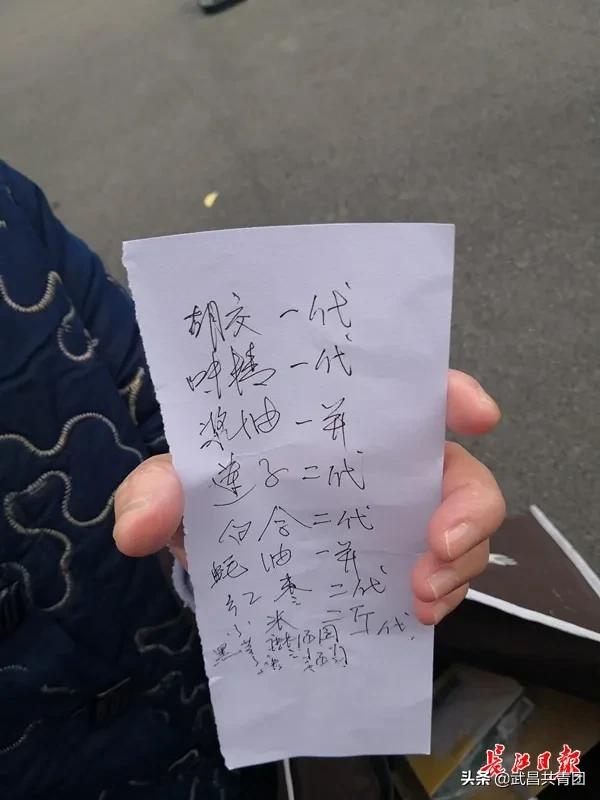 胡交一代
味精一代
浆油一并
莲子二代
白合二代
蚝油一并
红枣二代
小米二斤代
黑
长江日报
头条@武昌共青团